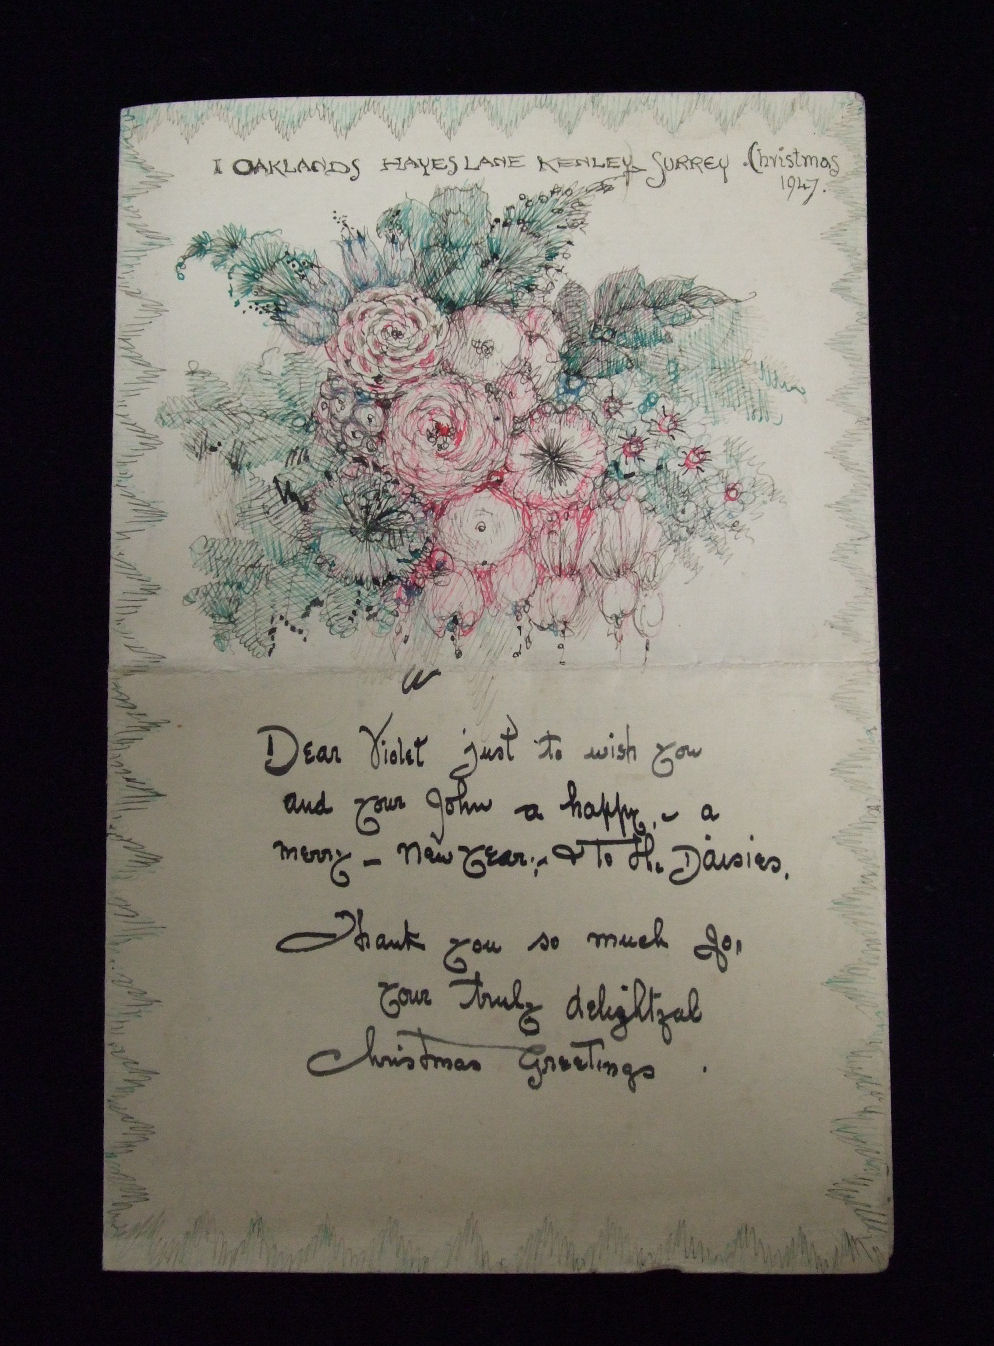 1 OAKLANDS HAYES LANE KENLEY SURREY . Christmas
1947.
Dear Violet just to wish you
and your John a happy, ~ a
merry – New Year; & To the Daisies.
Thank you so much for
your truly delightful
Christmas Greetings .